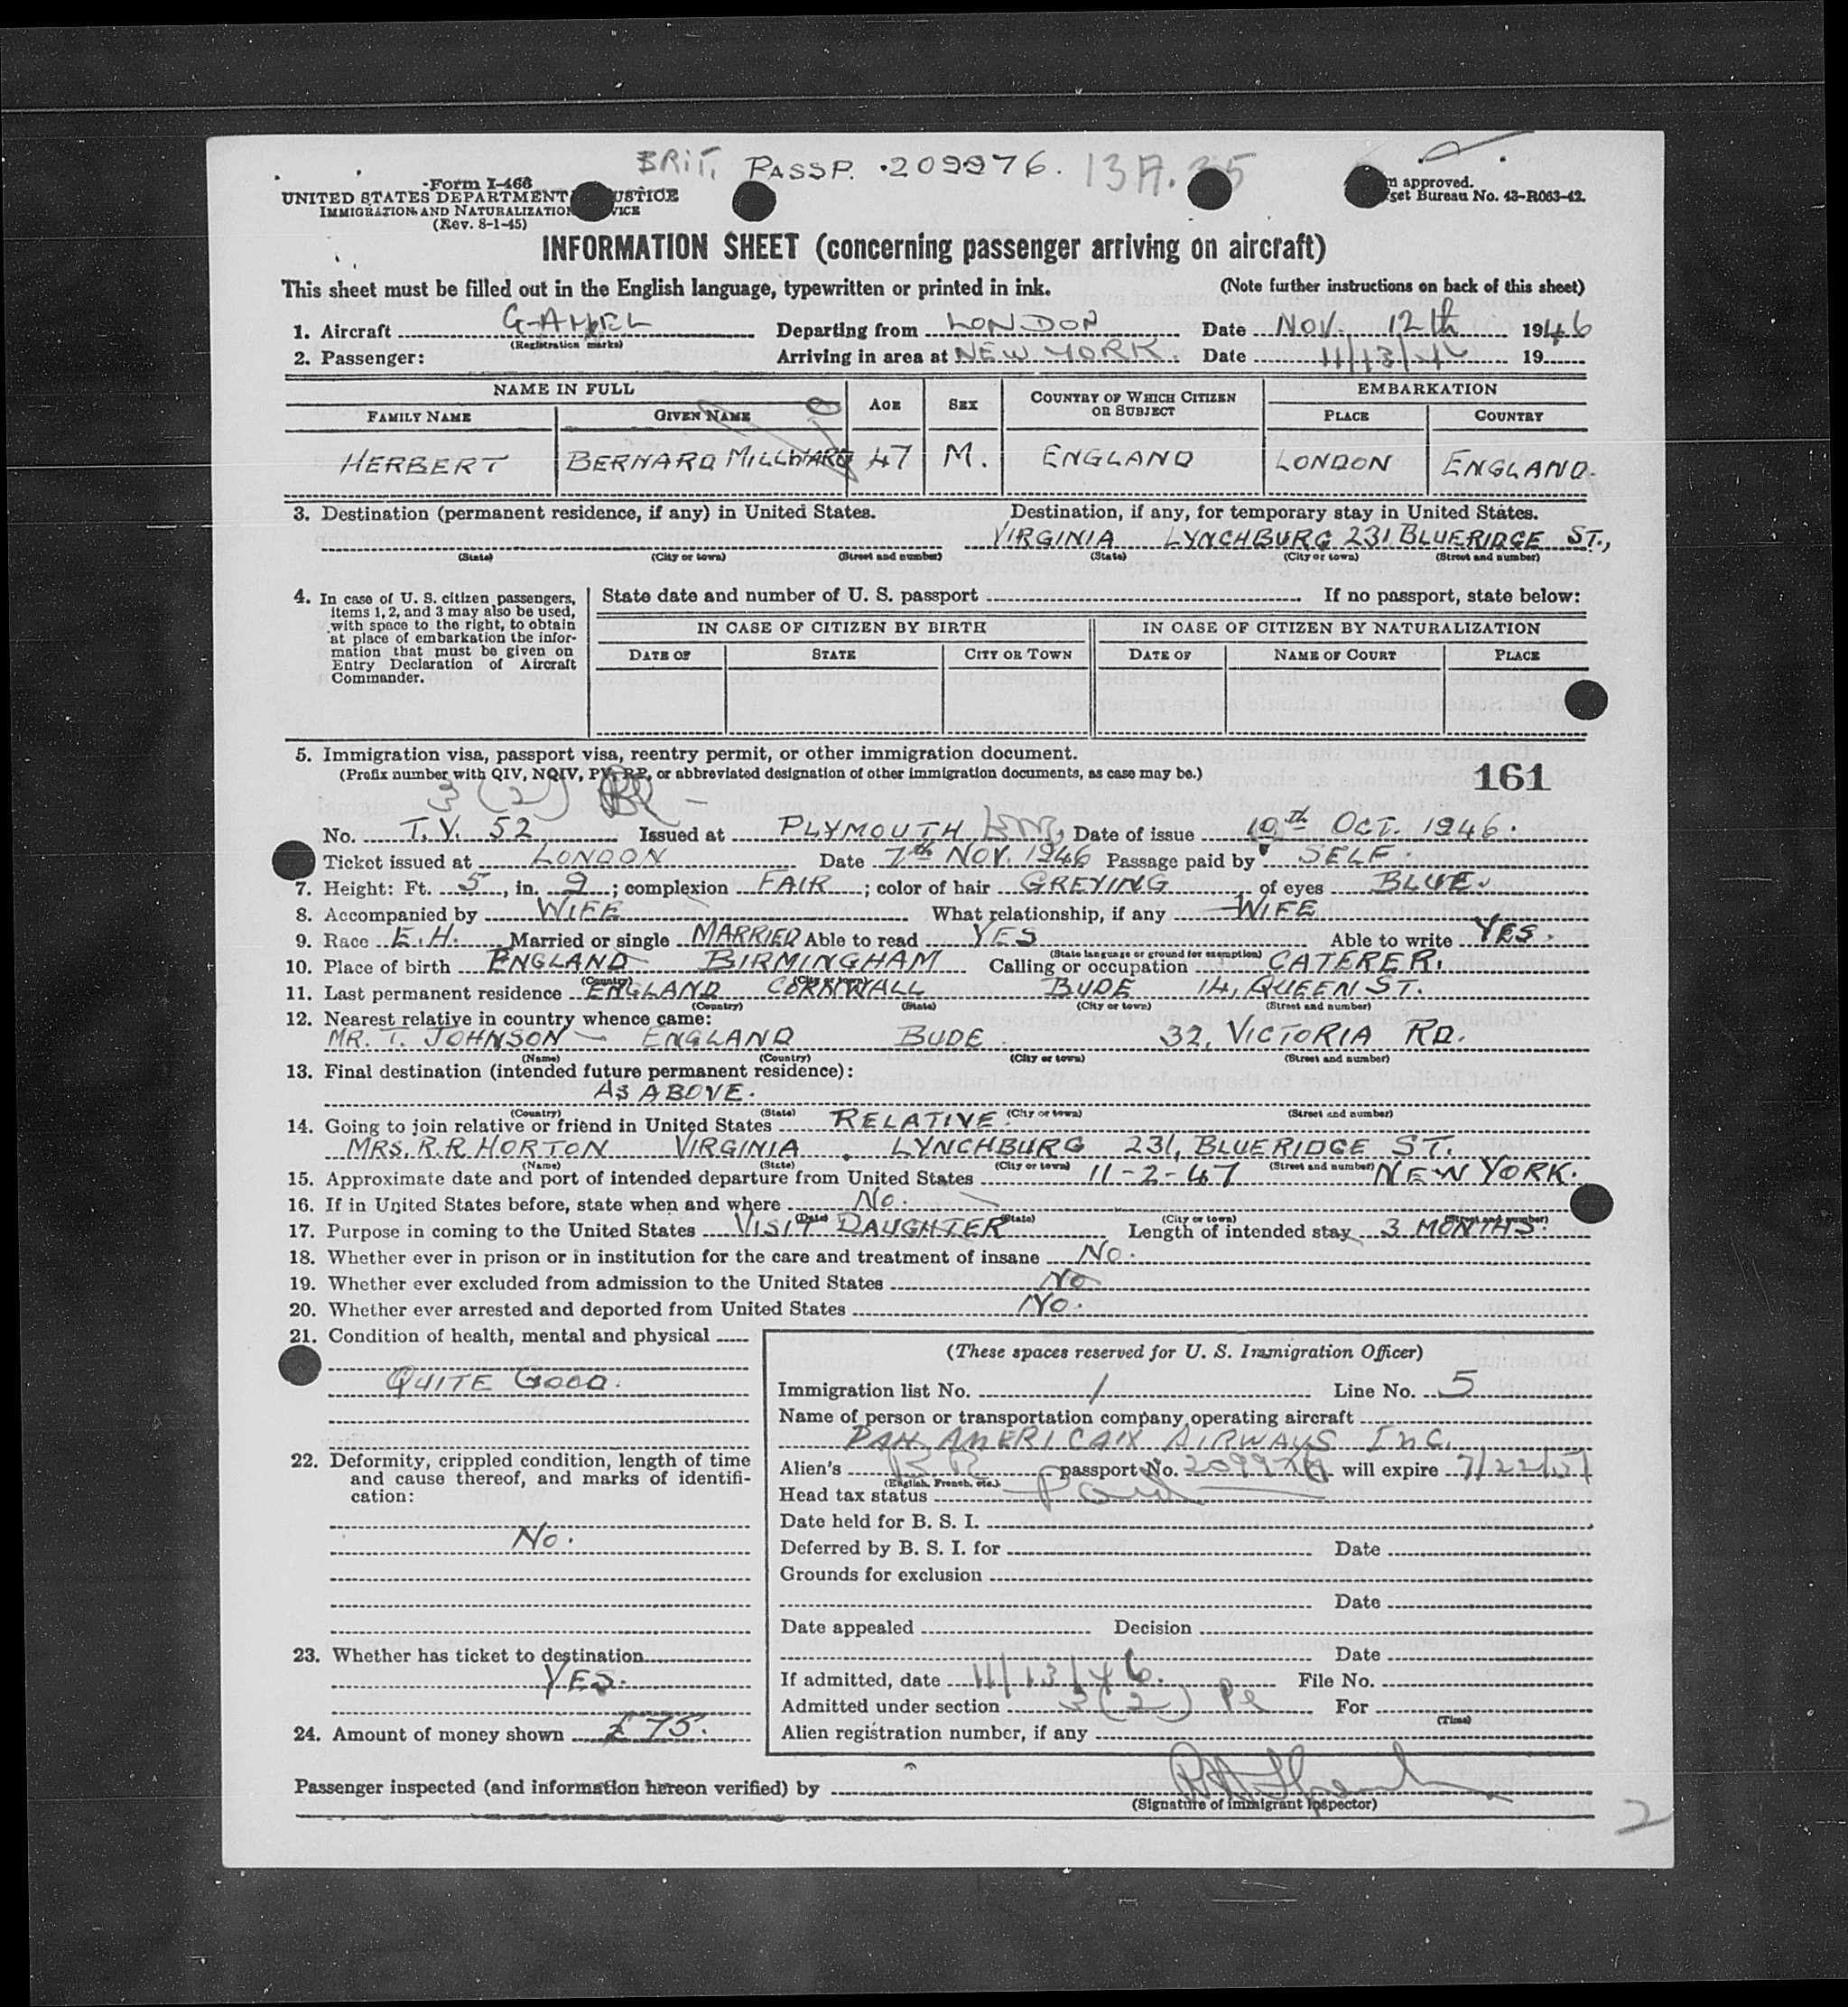 BRIT. PASSP. 209976.
Form I-466
UNITED STATES DEPARTMENT JUSTICE
IMMIGRATION AND NATURALIZATION
(Rev. 8-1-45)
approved.
Bureau No. 43-R063-42.
INFORMATION SHEET (concerning passenger arriving on aircraft)
This sheet must be filled out in the English language, typewritten or printed in ink. (Note further instructions on back of this sheet)
1. Aircraft G-AHEL Departing from LONDON Date NOV. 12th 1946
(Registration marks)
2. Passenger: Arriving in area at NEW YORK. Date 11/13/46 19
NAME IN FULL AGE SEX COUNTRY OF WHICH CITIZEN OR SUBJECT EMBARKATION
FAMILY NAME GIVEN NAME PLACE COUNTRY
HERBERT BERNARD MILLWARD 47 M. ENGLAND LONDON ENGLAND.
3. Destination (permanent residence, if any) in United States. Destination, if any, for temporary stay in United States.
VIRGINIA LYNCHBURG 231 BLUERIDGE ST.,
(State) (City or town) (Street and number) (State) (City or town) (Street and number)
4. In case of U. S. citizen passengers, items 1, 2, and 3 may also be used, with space to the right, to obtain at place of embarkation the information that must be given on Entry Declaration of Aircraft Commander.
State date and number of U. S. passport If no passport, state below:
IN CASE OF CITIZEN BY BIRTH IN CASE OF CITIZEN BY NATURALIZATION
DATE OF STATE CITY OR TOWN DATE OF NAME OF COURT PLACE
5. Immigration visa, passport visa, reentry permit, or other immigration document.
(Prefix number with QIV, NQIV, PV, RP, or abbreviated designation of other immigration documents, as case may be.) 161
3 (2)
No. T.V. 52 Issued at PLYMOUTH Date of issue 10th OCT. 1946.
Ticket issued at LONDON Date 7th NOV. 1946 Passage paid by SELF.
7. Height: Ft. 5, in. 9; complexion FAIR; color of hair GREYING of eyes BLUE.
8. Accompanied by WIFE What relationship, if any WIFE
9. Race E.H. Married or single MARRIED Able to read YES Able to write YES.
(State language or ground for exemption)
10. Place of birth ENGLAND BIRMINGHAM Calling or occupation CATERER.
(Country) (City or town)
11. Last permanent residence ENGLAND CORNWALL BUDE 14, QUEEN ST.
(Country) (State) (City or town) (Street and number)
12. Nearest relative in country whence came:
MR. T. JOHNSON ENGLAND BUDE 32, VICTORIA RD.
(Name) (Country) (City or town) (Street and number)
13. Final destination (intended future permanent residence):
AS ABOVE.
(Country) (State) (City or town) (Street and number)
14. Going to join relative or friend in United States RELATIVE.
MRS. R.R HORTON VIRGINIA. LYNCHBURG 231, BLUERIDGE ST.
(Name) (State) (City or town) (Street and number)
15. Approximate date and port of intended departure from United States 11-2-47 NEW YORK.
16. If in United States before, state when and where No.
(Date) (State) (City or town) (Street and number)
17. Purpose in coming to the United States VISIT DAUGHTER Length of intended stay 3 MONTHS.
18. Whether ever in prison or in institution for the care and treatment of insane No.
19. Whether ever excluded from admission to the United States No
20. Whether ever arrested and deported from United States No.
21. Condition of health, mental and physical
QUITE GOOD.
22. Deformity, crippled condition, length of time and cause thereof, and marks of identification:
No.
23. Whether has ticket to destination
YES.
24. Amount of money shown £75.
(These spaces reserved for U. S. Immigration Officer)
Immigration list No. 1 Line No. 5
Name of person or transportation company operating aircraft
PAN AMERICAN AIRWAYS INC.
Alien's BR passport No. 209976 will expire 7/22/51
(English, French, etc.)
Head tax status Paid
Date held for B. S. I.
Deferred by B. S. I. for Date
Grounds for exclusion
Date
Date appealed Decision
Date
If admitted, date 11/13/46. File No.
Admitted under section 3(2) For
(Time)
Alien registration number, if any
Passenger inspected (and information hereon verified) by
(Signature of Immigrant Inspector)
2